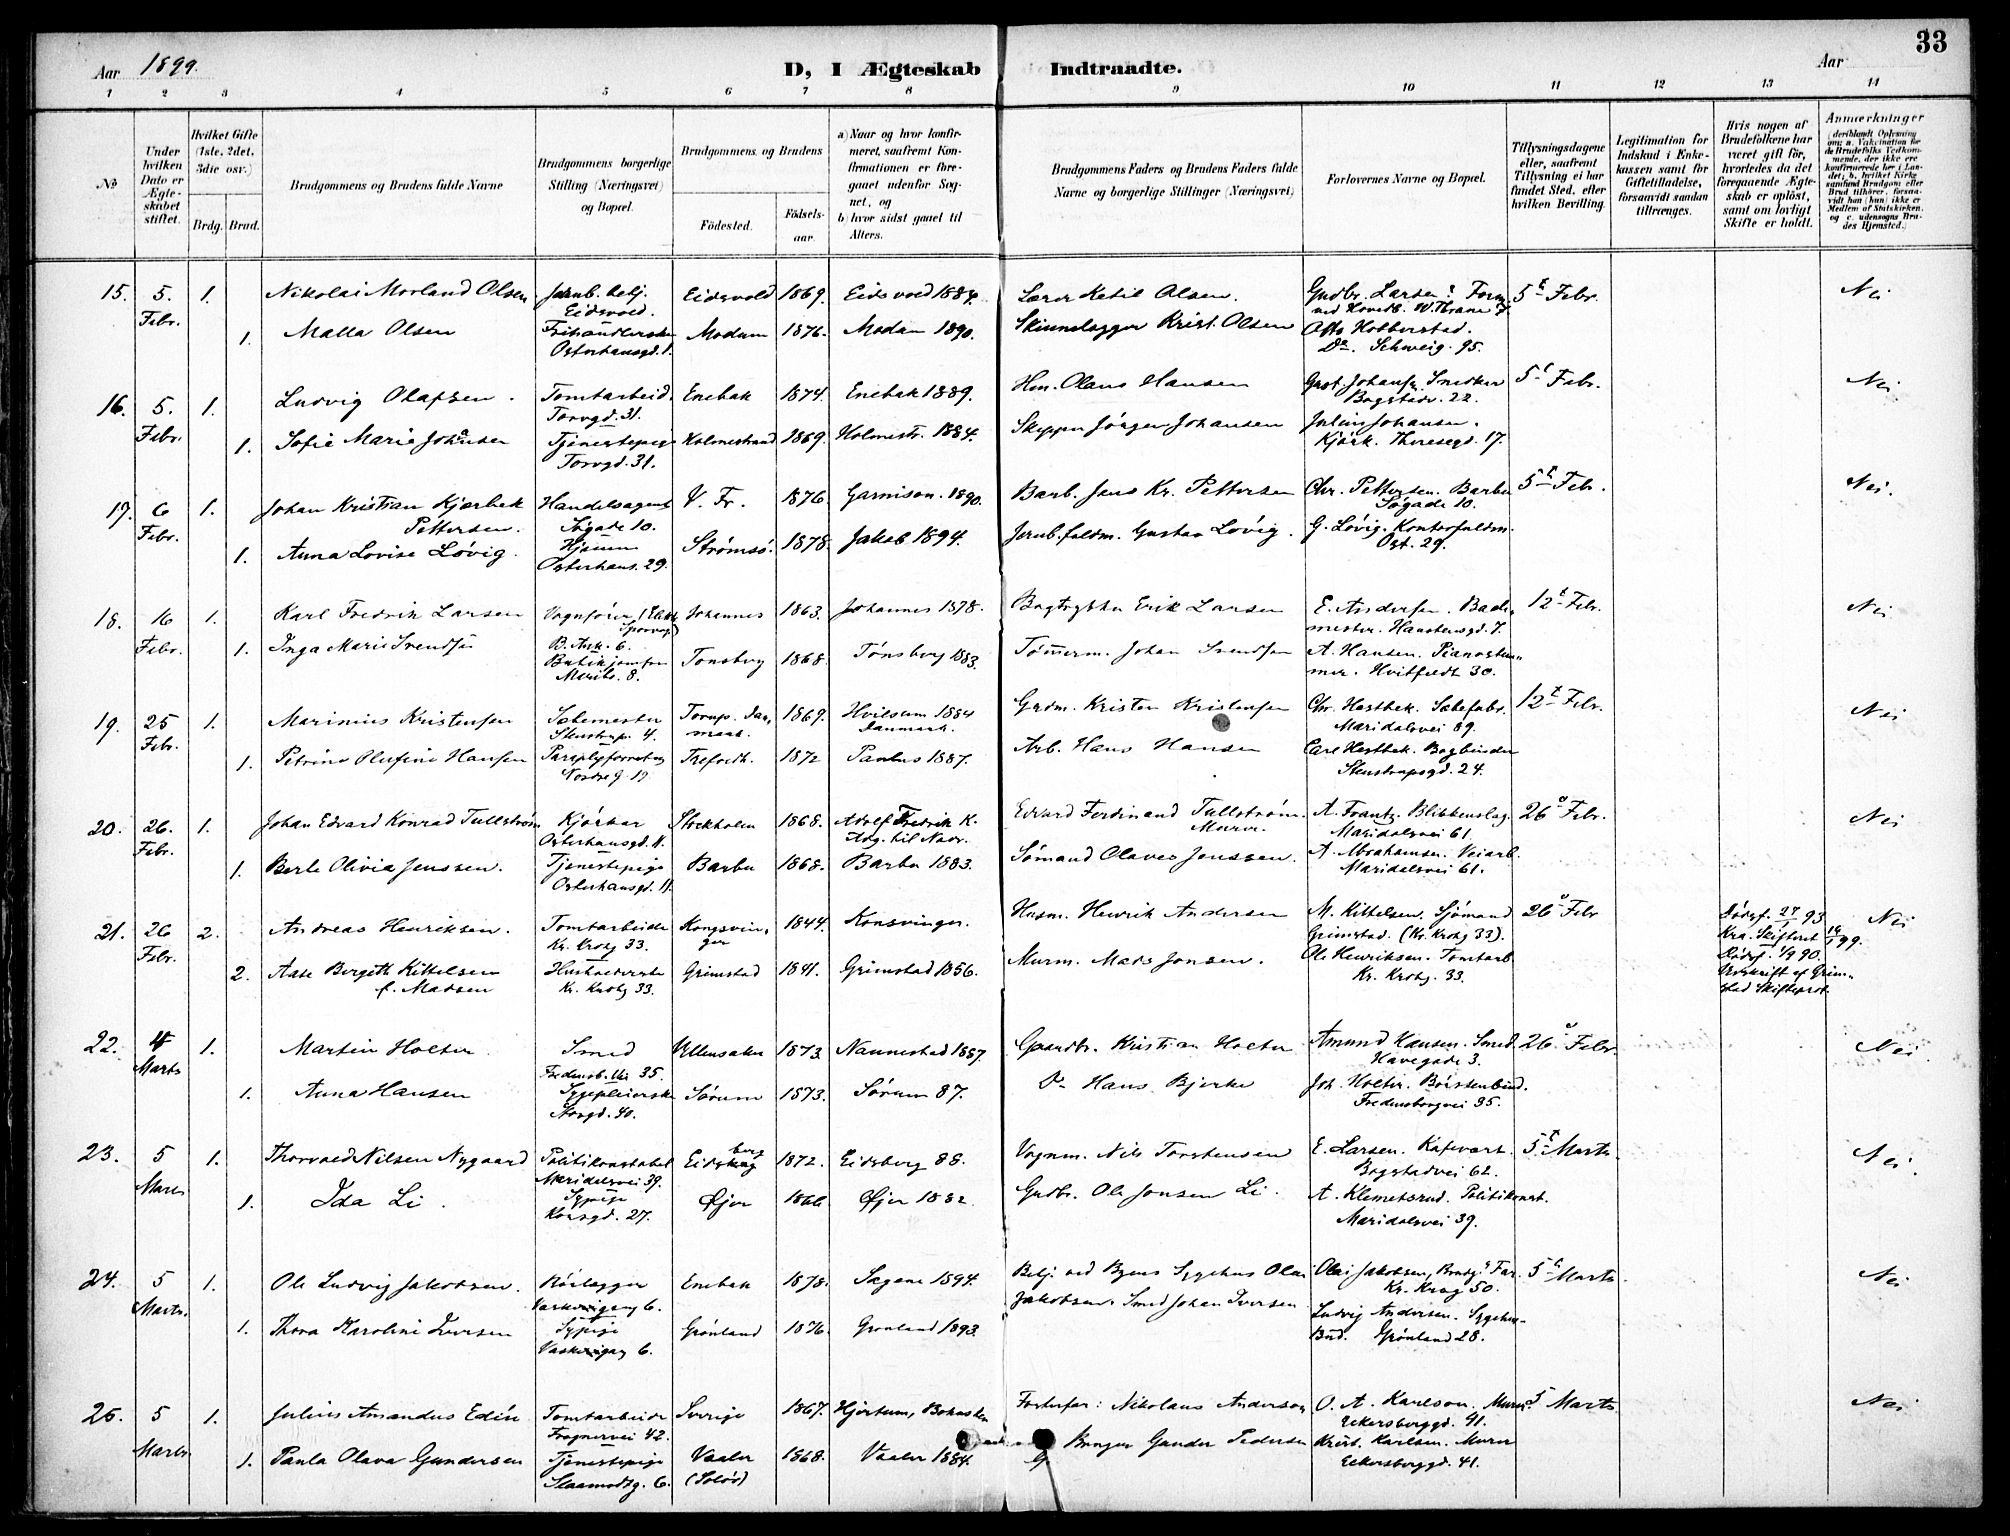 33
Aar 1899. D, I Ægteskab Indtraadte. Aar
1 2 3 4 5 6 7 8 9 10 11 12 13 14
No
Under hvilken Dato er Ægteskabet stiftet.
Hvilket Gifte (1ste, 2det, 3die osv.)
Brdg. Brud.
Brudgommens og Brudens fulde Navne
Brudgommens borgerlige Stilling (Næringsvei) og Bopæl.
Brudgommens og Brudens
Fødested. Fødselsaar.
a) Naar og hvor konfirmeret, saafremt Konfirmationen er foregaaet udenfor Sognet, og
b) hvor sidst gaaet til Alters.
Brudgommens Faders og Brudens Faders fulde Navne og borgerlige Stillinger (Næringsvei)
Forlovernes Navne og Bopæl.
Tillysningsdagene eller, saafremt Tillysning ei har fundet Sted, efter hvilken Bevilling.
Legitimation for Indskud i Enkekassen samt for Giftetilladelse, forsaavidt saadan tiltrænges.
Hvis nogen af Brudefolkene har været gift før, hvorledes da det foregaaende Ægteskab er opløst, samt om lovligt Skifte er holdt.
Anmærkninger (deriblandt Oplysning om: a. Vakcination for de Brudefolks Vedkommende, der ikke ere konfirmerede her i Landet; b. hvilket Kirkesamfund Brudgom eller Brud tilhører, forsaavidt han (hun) ikke er Medlem af Statskirken, og c. udensogns Brudes Hjemsted.)
15. 5. 1. Nikolai Morland Olsen Jernb. betj. Eidsvold 1869. Eidsvold 1884. Lærer Ketil Olsen. Gudbr. Larsen 5te Febr. Nei
Febr. Eidsvold.
1. Malla Olsen Frihandlerske Modum 1876. Modum 1890. Skinnelægger Krist. Olsen Otto Hobberstad.
Osterhausgd. 1. Do. Schweig. 95.
16. 5. 1. Ludvig Olafsen. Tomtarbeid. Enebak 1874. Enebak 1889. Hm. Olaus Hansen Gust. Johansen Snedker 5te Febr. Nei
Febr. Torvgd. 31. Bogstadv. 22.
1. Sofie Marie Johansen Tjenestepige Holmestrand 1869. Holmestr. 1884. Skipper Jørgen Johansen Julius Johansen.
Torvgd. 31. Kjørk. Theresegd. 17.
17. 6 1. Johan Kristian Kjærbek Handelsagent V. Fr. 1876. Garnison. 1890. Barb. Jens Kr. Pettersen Chr. Pettersen. Barber 5te Febr. Nei.
Febr. Pettersen. Søgade 10. Søgade 10.
1. Anna Lovise Løvig. Hjemme Strømsø. 1878. Jakob 1894. Jernb. fuldm. Gustav Løvig. G. Løvig. Kontorfuldm.
Osterhaus. 29. Ost. 29.
18. 16 1. Karl Fredrik Larsen Vognfører (Elektr. Sporvog) Johannes 1863. Johannes 1878. Bogtrykker Erik Larsen E. Andersen. Bademester. Haustensgd. 7. 12te Febr. Nei
Febr. B. Ank. 6.
1. Inga Marie Svendsen Butikjomfru Tønsberg 1868. Tønsberg 1883. Tømmerm. Johan Svendsen A. Hansen. Pianostem-
Marib. 8. mer. Hvitfeldt 30.
19. 25 1. Marinius Kristensen Sæbemester Torup. Dan, 1869. Hvilsum 1884 Grdm. Kristen Kristensen Chr. Hestbek. Sæbefabr. 12te Febr. Nei
Febr. Stenstrups. 4. mark. Danmark. Maridalsvei 89.
1. Petrine Olufine Hansen Paraplyforretng Trefoldh. 1872 Paulus 1887. Arb. Hans Hansen Carl Hestbek. Bogbinder
Nordre g. 19 Stenstrupsgd. 24.
20. 26. 1. Johan Edvard Konrad Tullstrøm Kjørkar Stockholm 1868. Adolf Fredrik K. Edvard Ferdinand Tullstrøm. A. Frantz. Blikkenslag. 26de Febr. Nei
Febr. Osterhausgd. 11. Adg. til Nadv. Murer. Maridalsvei 61.
1. Berte Olivia Jenssen. Tjenestepige Barbu 1868. Barbu 1883. Sømand Olaves Jenssen. A. Abrahamsen. Veiarb.
Osterhausgd. 11. Maridalsvei 61.
21. 26 2. Andreas Henriksen. Tomtarbeider Kongsvin, 1844. Konsvinger. Husm. Henrik Andersen M. Kittelsen. Sjömand 26de Febr Dødsf. 27/ 93 Nei
Febr. Kr. Krohg 33. ger Grimstad. (Kr. Krohg 33). Kra. Skifteret 14/1 99.
2. Aase Bergith Kittelsen Husholderske Grimstad 1841. Grimstad 1856. Murm. Mads Jensen. Ole Henriksen. Tomtarb Dødsf. 1/9 90.
f. Madsen Kr. Krohg 33. Kr. Krohg. 33. Udskrift af Grim-
stad Skifteprot.
22. 4 1. Martin Holter Smed Ullensaker 1873. Nannestad 1887. Gaardbr. Kristian Holter Amund Hansen. Smed 26de Febr. Nei.
Marts Fredensb. Vei 35. Havegade 3.
1. Anna Hansen Sygepleierske Sørum 1873. Sørum 87. Do Hans Bjerke Joh. Holter. Börstenbind.
Storgd. 40. Fredensborgvei 35.
23. 5 1. Thorvald Nilsen Nygaard Politikonstabel Eidsberg 1872. Eidsberg 88. Vognm. Nils Torstensen E. Larsen. Kafevært. 5te Marts Nei.
Marts Maridalsvei 39. Bogstadvei 62.
1. Ida Li. Sypige Øjer 1866 Øjer 1882. Grdbr. Ole Jensen Li. A. Klemetsrud. Politikonst.
Korsgd. 27. Maridalsvei 39.
24. 5 1. Ole Ludvig Jakobsen. Rörlægger Enebak 1878. Sagene 1894. Betj. ved Byens Sygehus Olai Olai Jakobsen, Brudg. Far. 5te Marts. Nei
Marts. 6. Jakobsen. Smed Johan Iversen Kr. Krog 50.
1. Thora Karoline Iversen Sypige Grønland 1876. Grønland 1893. Ludvig Andersen. Sygehus-
6. Bud. Grønland 28.
25. 5 1. Julius Amandus Edén Tomtarbeider Sverige 1867. Hjørtum, Bohuslen Forhenv: Nikolaus Anderson O. A. Karlson. Murer. 5 Marts. Nei
Marts Frognervei 42. Eckersberggd. 41.
1. Paula Olava Gundersen Tjenestepige Vaaler 1868. Vaaler 1884. Gunder Pedersen Krist. Karlsen. Murer
Slaamodtg. 6. (Solør) Eckersberggd. 41.